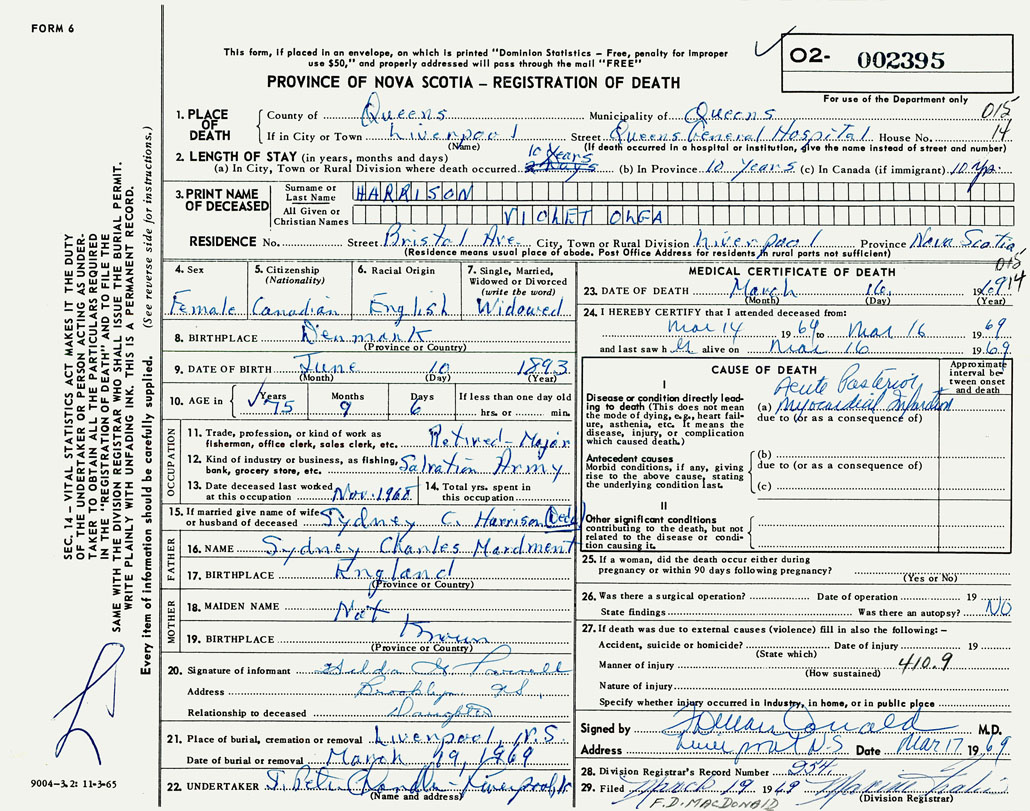 FORM 6
This form, if placed in an envelope, on which is printed "Dominion Statistics – Free, penalty for improper
use $50," and properly addressed will pass through the mail "FREE"
PROVINCE OF NOVA SCOTIA – REGISTRATION OF DEATH
02- 002395
For use of the Department only
015
14
1. PLACE OF DEATH
County of Queens Municipality of Queens
If in City or Town Liverpool Street Queens General Hospital House No.
(Name) (If death occurred in a hospital or institution, give the name instead of street and number)
2. LENGTH OF STAY (in years, months and days)
10 Years
(a) In City, Town or Rural Division where death occurred (b) In Province 10 Years (c) In Canada (if immigrant) 10 yrs.
3. PRINT NAME OF DECEASED
Surname or Last Name HARRISON
All Given or Christian Names VIOLET OLGA
RESIDENCE No. Street Bristol Ave. City, Town or Rural Division Liverpool Province Nova Scotia
(Residence means usual place of abode. Post Office Address for residents in rural parts not sufficient)
015
14
4. Sex
Female
5. Citizenship
(Nationality)
Canadian
6. Racial Origin
English
7. Single, Married,
Widowed or Divorced
(write the word)
Widowed
8. BIRTHPLACE Denmark
(Province or Country)
9. DATE OF BIRTH June 10 1893
(Month) (Day) (Year)
10. AGE in Years Months Days If less than one day old
75 9 6 hrs. or min.
OCCUPATION
11. Trade, profession, or kind of work as
fisherman, office clerk, sales clerk, etc. Retired - Major
12. Kind of industry or business, as fishing,
bank, grocery store, etc. Salvation Army
13. Date deceased last worked
at this occupation Nov. 1960
14. Total yrs. spent in
this occupation
15. If married give name of wife
or husband of deceased Sydney C. Harrison (Decd)
FATHER
16. NAME Sydney Charles Mardment
17. BIRTHPLACE England
(Province or Country)
MOTHER
18. MAIDEN NAME Not
19. BIRTHPLACE Known
(Province or Country)
20. Signature of informant Hilda
Address Brooklyn N.S.
Relationship to deceased Daughter
21. Place of burial, cremation or removal Liverpool, N.S.
Date of burial or removal March 19, 1969
22. UNDERTAKER T. Pete Chandler Liverpool
(Name and address)
MEDICAL CERTIFICATE OF DEATH
23. DATE OF DEATH March 16 1969
(Month) (Day) (Year)
24. I HEREBY CERTIFY that I attended deceased from:
Mar 14 1969 to Mar 16 1969
and last saw her alive on Mar 16 1969
CAUSE OF DEATH
Approximate
interval be-
tween onset
and death
I
Disease or condition directly lead-
ing to death (This does not mean
the mode of dying, e.g., heart fail-
ure, asthenia, etc. It means the
disease, injury, or complication
which caused death.)
Acute Posterior
(a) Myocardial Infarction
due to (or as a consequence of)
Antecedent causes
Morbid conditions, if any, giving
rise to the above cause, stating
the underlying condition last.
(b)
due to (or as a consequence of)
(c)
II
Other significant conditions
contributing to the death, but not
related to the disease or condi-
tion causing it.
25. If a woman, did the death occur either during
pregnancy or within 90 days following pregnancy?
(Yes or No)
26. Was there a surgical operation? Date of operation 19
State findings Was there an autopsy? NO
27. If death was due to external causes (violence) fill in also the following: –
Accident, suicide or homicide? Date of injury 19
(State which)
Manner of injury 410.9
(How sustained)
Nature of injury
Specify whether injury occurred in industry, in home, or in public place
Signed by M.D.
Address Liverpool N.S Date Mar 17 1969
28. Division Registrar's Record Number 954
29. Filed March 19 1969
(Division Registrar)
F.D. MACDONALD
SEC. 14 – VITAL STATISTICS ACT MAKES IT THE DUTY
OF THE UNDERTAKER OR PERSON ACTING AS UNDER-
TAKER TO OBTAIN ALL THE PARTICULARS REQUIRED
IN THE "REGISTRATION OF DEATH" AND TO FILE THE
SAME WITH THE DIVISION REGISTRAR WHO SHALL ISSUE THE BURIAL PERMIT.
WRITE PLAINLY WITH UNFADING INK. THIS IS A PERMANENT RECORD.
Every item of information should be carefully supplied. (See reverse side for instructions.)
9004-3.2: 11-3-65